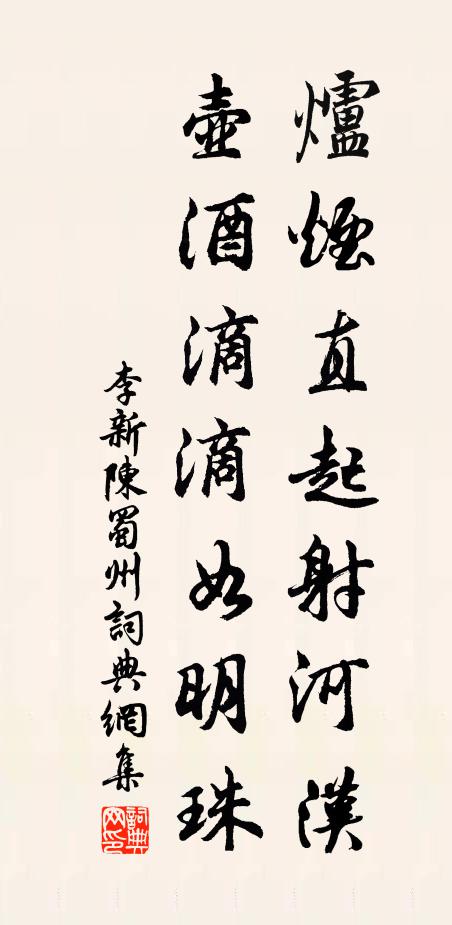 爐煙直起射河漢
壺酒滴滴如明珠
李新陳蜀州詞典網集
詞典網印